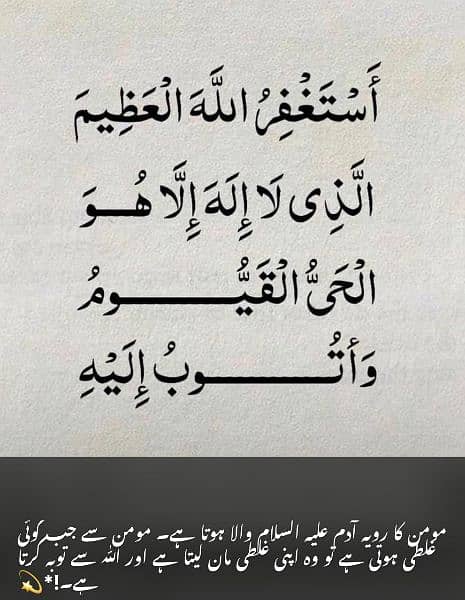 أَسْتَغْفِرُ اللَّهَ الْعَظِيمَ
الَّذِى لَا إِلَهَ إِلَّا هُوَ
الْحَىُّ الْقَيُّومُ
وَأَتُوبُ إِلَيْهِ
مومن کا رویہ آدم علیہ السلام والا ہوتا ہے۔ مومن سے جب کوئی
غلطی ہوتی ہے تو وہ اپنی غلطی مان لیتا ہے اور اللہ سے توبہ کرتا
ہے۔!*💫